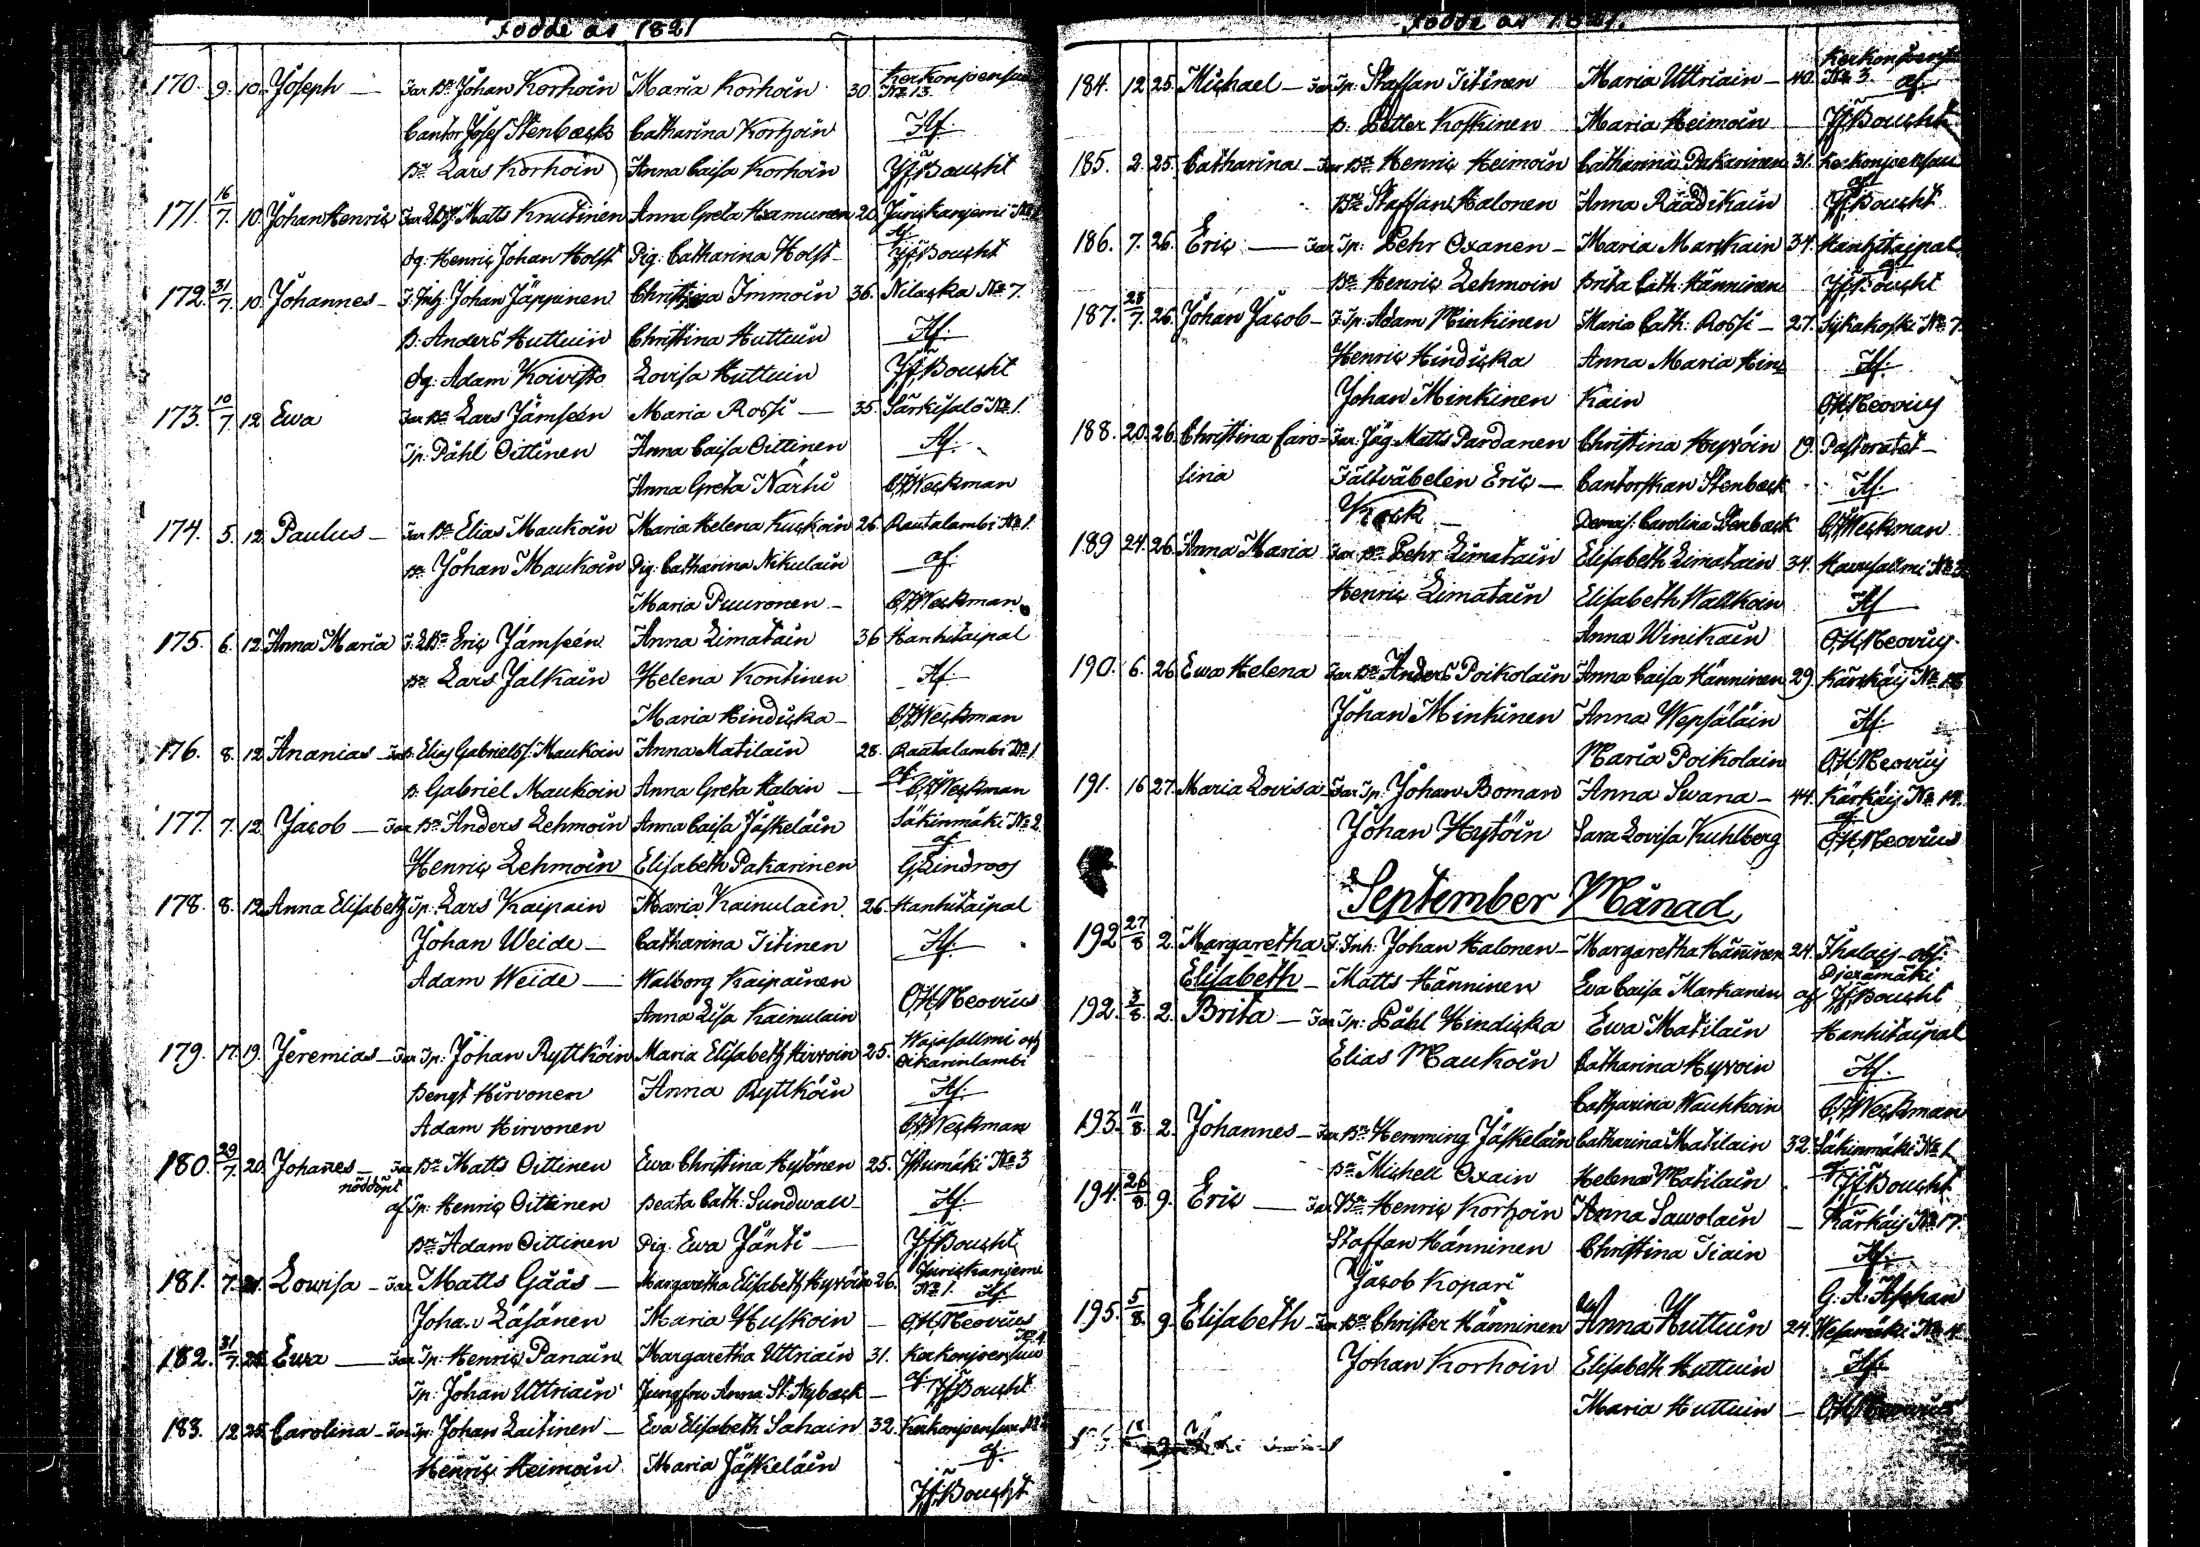 Födde år 1821
170. 9. 10. Joseph — Far Bn Johan Korhoin Maria Korhoin 30 Kerkonjensuu No 13.
Cantor Josef Stenbäck Catharina Korhoin Af.
Bn Lars Korhoin Anna Caisa Korhoin Bought
171. 16/7. 10 Johan Henric Far Matts Knutinen Anna Greta Hamunen 20 No 1
dg. Henric Johan Holst Pig. Catharina Holst Af Bought
172. 31/7. 10 Johannes — F. Inh. Johan Jäppinen Christina Immoin 36. Nilaska No 7.
B. Anders Huttuin Christina Huttuin Af.
dg. Adam Koivisto Lovisa Huttuin Bought
173. 10/7 12 Ewa Far Bn Lars Jämsén Maria Rossi — 35. Särkisalo No 1.
Tp. Påhl Oittinen Anna Caisa Oittinen Af.
Anna Greta Närhi Weckman
174. 5. 12 Paulus — Far Bn Elias Maukoin Maria Helena Kuckoin 26 Rautalambi No 1.
Bn Johan Maukoin Pig. Catharina Nikulain af.
Maria Puuronen — Weckman
175. 6. 12 Anna Maria F. Bn Eric Jämseén Anna Limatain 36 Hankitaipal
Bn Lars Jalkain Helena Kontinen Af.
Maria Hindicka — Weckman
176. 8. 12 Ananias — Far B. Elias Gabrielss. Maukoin Anna Matilain 28. Rautalambi No 1
B. Gabriel Maukoin Anna Greta Haloin — af Weckman
177. 7. 12 Jacob — Far Bn Anders Lehmoin Anna Caisa Jäskeläin Säkinmäki No 2
Henric Lehmoin Elisabeth Pakarinen af G. Lindroos
178. 8. 12 Anna Elisabeth Tp. Lars Kaipain Maria Kainulain 26. Hankitaipal
Johan Weide — Catharina Titinen Af.
Adam Weide — Walborg Kaipainen
Anna Lisa Kainulain O.H. Neovius
179. 17. 19. Jeremias — Far Tp. Johan Ryttköin Maria Elisabeth Hirvoin 25. Hajasallmi och Oikarinlambi
Bengt Hirvonen Anna Ryttköin Af.
Adam Hirvonen Weckman
180. 29/7. 20. Johannes — Far Bn Matts Oittinen Ewa Christina Hytönen 25. No 3
nöddöpt
af Tp. Henric Oittinen Beata Cath. Sundwall — Af.
Bn Adam Oittinen Pig. Ewa Jänti — Bought
181. 7. 21. Lovisa — Far Matts Gåås — Margaretha Elisabeth Hyvöin 26. No 1. Af
Johan Läsänen Maria Huskoin — O.H. Neovius
182. 31/7. Ewa — Far Tp. Henric Panain Margaretha Uttriain 31. Kerkonjensuu No 4
Tp. Johan Uttriain Jungfru Anna St. Nyback — af Bought
183. 12 25 Carolina — Far Tp. Johan Laitinen — Eva Elisabeth Sahain 32. Kerkonjensuu
Henric Heimoin Maria Jäskeläin af.
Bought
Födde år 1821.
184. 12 25. Michael — Far Tp. Staffan Titinen Maria Uttriain — 40. Kerkonjensuu No 3. af
B. Petter Koskinen Maria Heimoin Bought
185. 2. 25. Catharina — Far Bn Henric Heimoin Catharina Pakarinen 31. Kerkonjensuu af
Bn Staffan Halonen Anna Räädikäin Bought
186. 7. 26. Eric — Far Tp. Pehr Oxanen — Maria Marckain 34. Hankitaipal
Bn Henric Lehmoin Brita Cath. Hänninen af Bought
187. 28/7. 26. Johan Jacob — F. Tp. Adam Minkinen Maria Cath. Rossi — 27. Sijkakoski No 7.
Henric Hindicka Anna Maria Hin= Af.
Johan Minkinen kain O.H. Neovius
188. 20. 26. Christina Caro= Far. Jäg. Matts Pardanen Christina Hyvöin 19. Pastoratet —
lina Fältväbelen Eric — Cantorskan Stenbäck Af.
Kock — Demois. Carolina Stenbäck Weckman
189 24. 26. Anna Maria Far Bn Pehr Limatain Elisabeth Limatain 34. No 3.
Henric Limatain Elisabeth Walkoin Af
Anna Winikain O.H. Neovius
190. 6. 26 Ewa Helena Far Bn Anders Poikolain Anna Caisa Hänninen 29. Kärkäis No
Johan Minkinen Anna Wepsäläin Af.
Maria Poikolain O.H. Neovius
191. 16 27. Maria Lovisa Far Tp. Johan Boman Anna Swana — 44. Kärkäis No 14.
Johan Hytöin Sara Lovisa Kuhlberg af O.H. Neovius
September Månad,
192 27/8 2. Margaretha F. Inh. Johan Halonen — Margaretha Hänninen 24.
Elisabeth — Matts Hänninen Eva Caisa Markanen af Bought
192. 3/8. 2. Brita — Far Tp. Påhl Hindicka Ewa Matilain Hankitaipal
Elias Maukoin Catharina Hyvoin Af.
Catharina Wauhkoin Weckman
193. 11/8. 2. Johannes — Far Bn Hemming Jäskeläin Catharina Matilain 32. Säkinmäki No 1.
Bn Michell Oxain Helena Matilain af Bought
194. 26/8. 9. Eric — Far Bn Henric Korhoin Anna Sawolain — Kärkäis No 17.
Staffan Hänninen Christina Tiain Af.
Jacob Kopari G. A. Asphan
195. 5/8. 9. Elisabeth — Far Bn Christer Hänninen Anna Huttuin 24. No 4.
Johan Korhoin Elisabeth Huttuin Af.
Maria Huttuin — O.H. Neovius